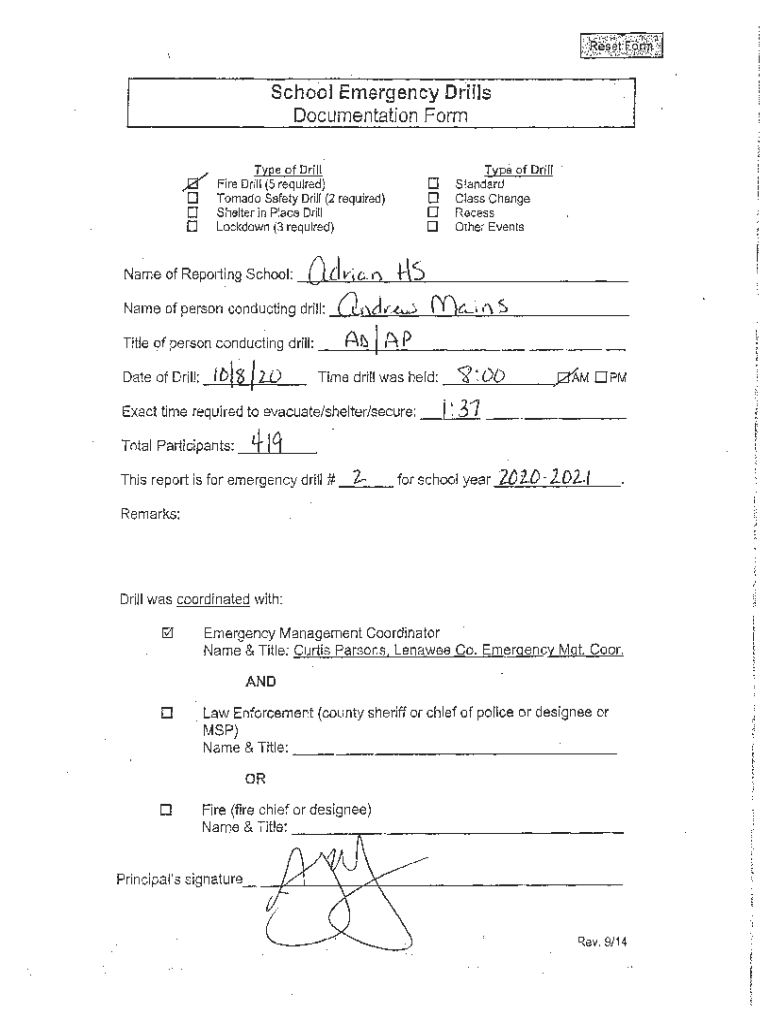 Reset Form
School Emergency Drills
Documentation Form
Type of Drill
Fire Drill (5 required)
Tornado Safety Drill (2 required)
Shelter in Place Drill
Lockdown (3 required)
Type of Drill
Standard
Class Change
Recess
Other Events
Name of Reporting School: Adrian HS
Name of person conducting drill: Andrew Mains
Title of person conducting drill: AD/AP
Date of Drill: 10/8/20 Time drill was held: 8:00 AM PM
Exact time required to evacuate/shelter/secure: 1:37
Total Participants: 419
This report is for emergency drill # 2 for school year 2020-2021.
Remarks:
Drill was coordinated with:
Emergency Management Coordinator
Name & Title: Curtis Parsons, Lenawee Co. Emergency Mgt. Coor.
AND
Law Enforcement (county sheriff or chief of police or designee or
MSP)
Name & Title:
OR
Fire (fire chief or designee)
Name & Title:
Principal's signature
Rev. 9/14